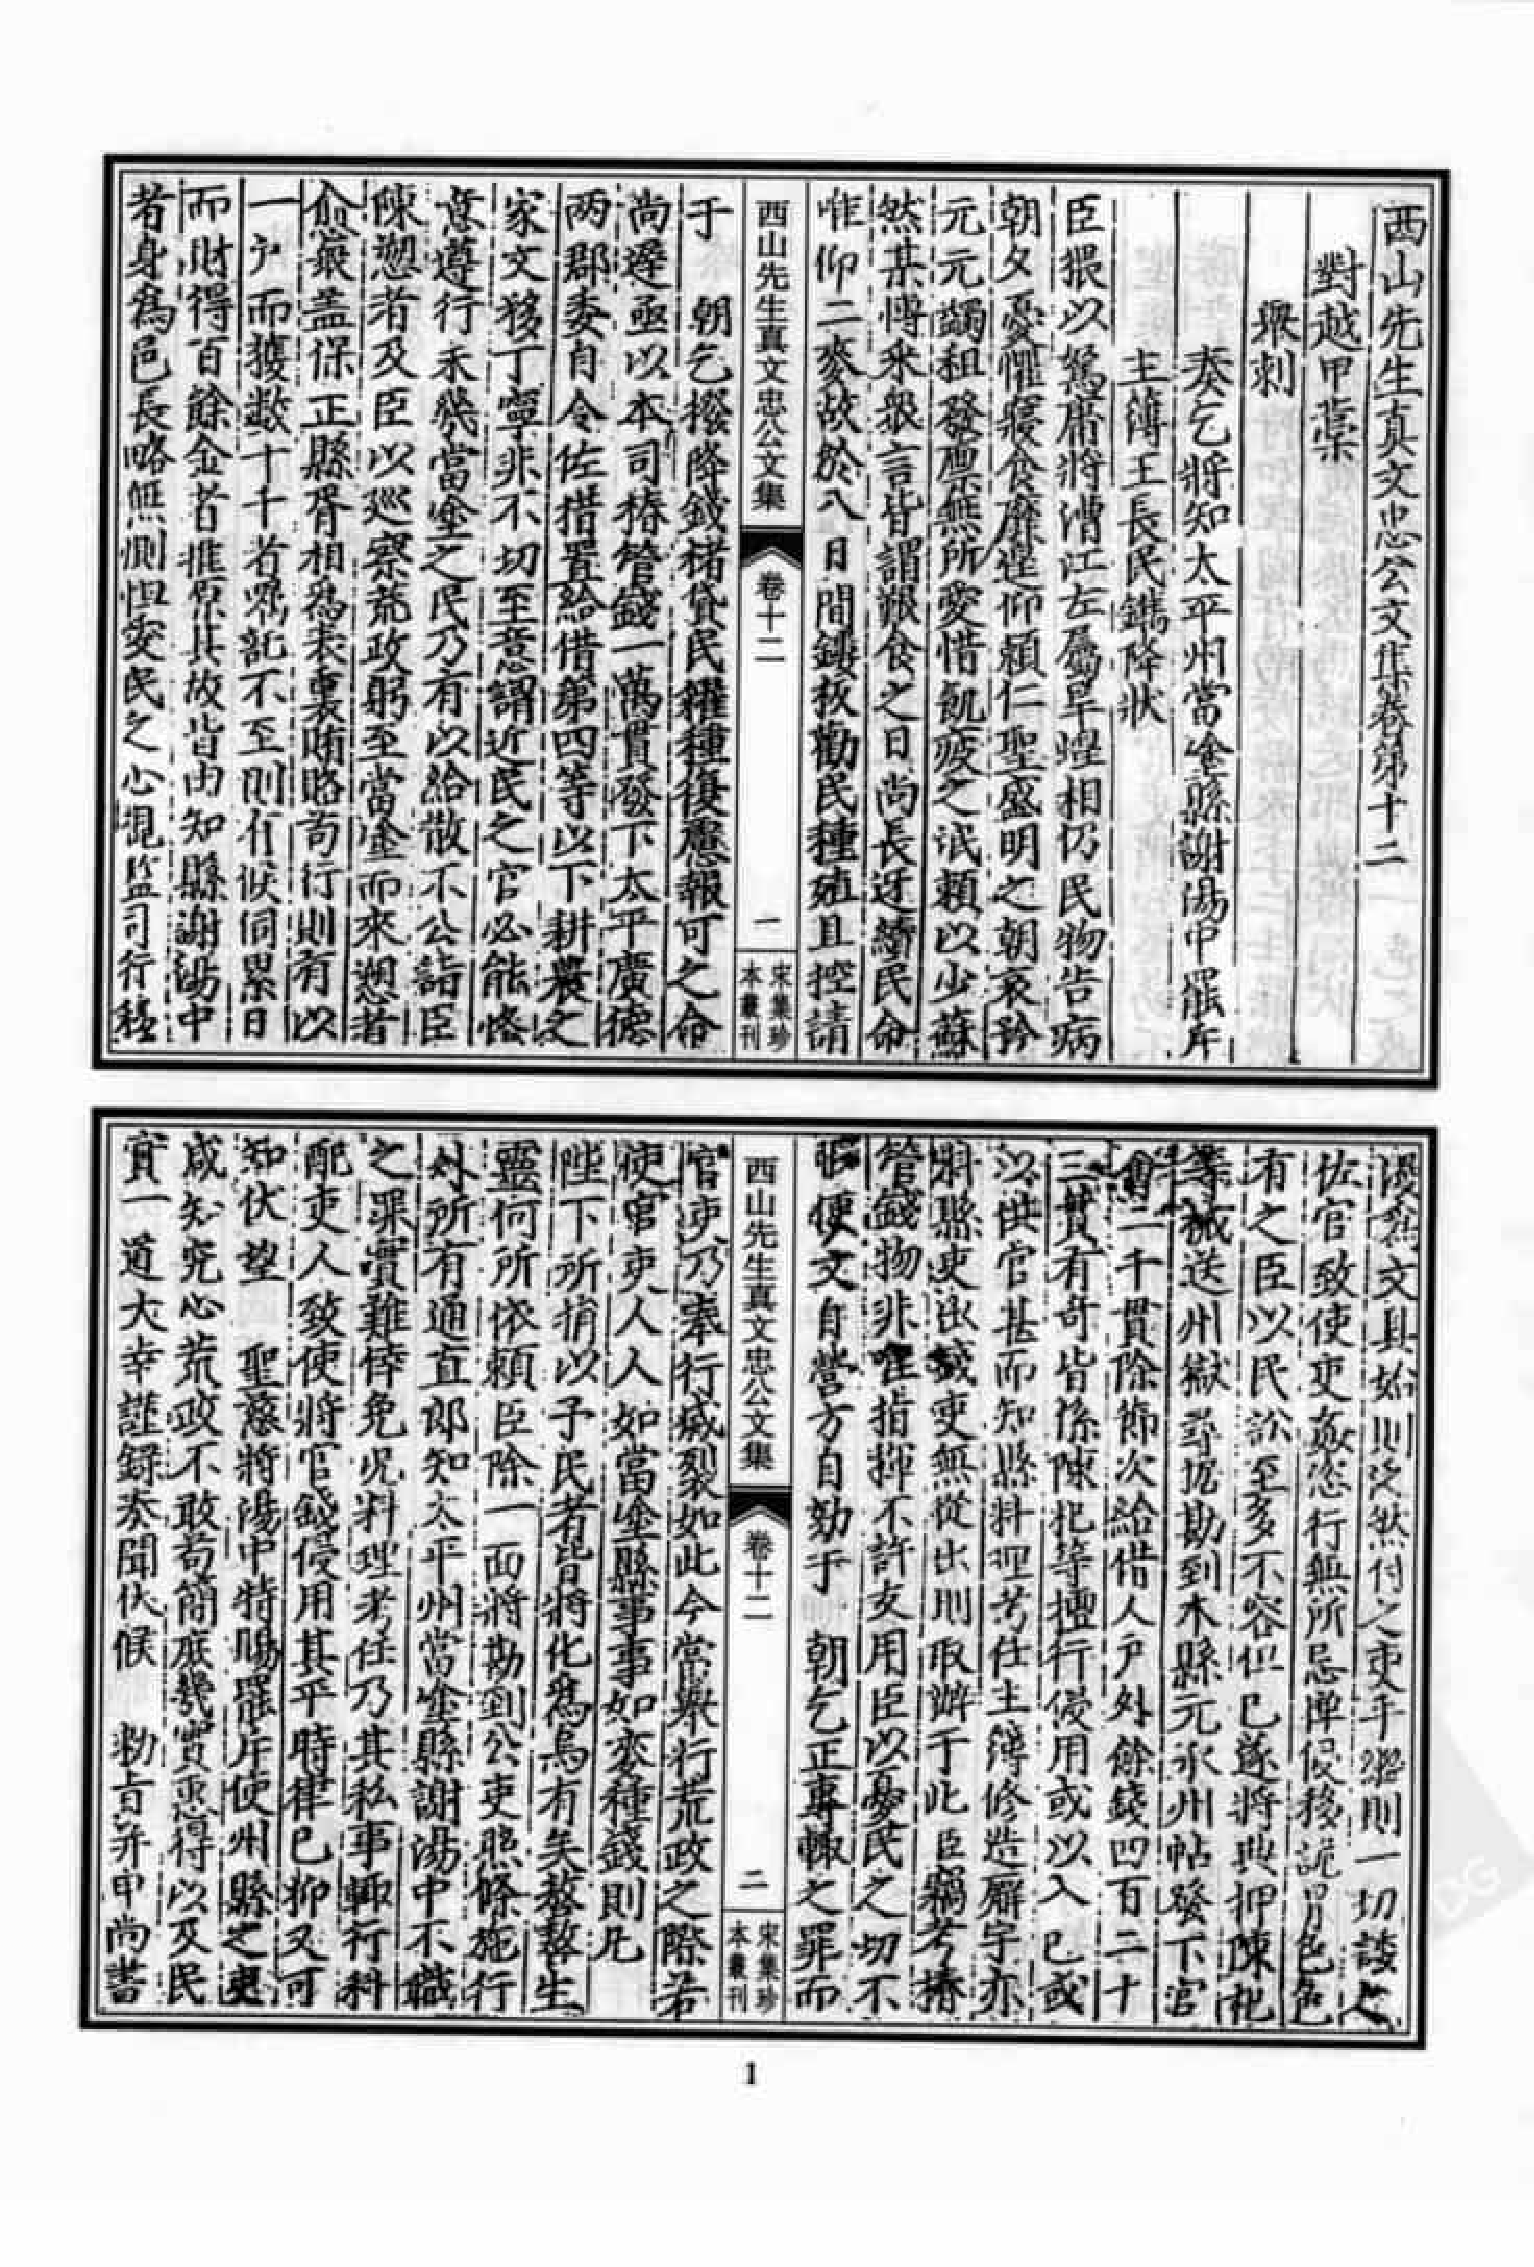 西山先生真文忠公文集卷第十二
對越甲藁
舉刺
奏乞將知太平州當塗縣謝湯中罷斥
主簿王長民鐫降狀
臣猥以駑庸將漕江左屬旱蝗相仍民物告病
朝夕憂懼寢食靡遑仰賴仁聖盛明之朝哀矜
元元蠲租發廪無所愛惜飢疲之氓賴以少蘇
然某博采衆言皆謂艱食之日尚長迓續民命
唯仰二麥故於八日間鏤牓勸民種殖且控請
于　朝乞撥降錢楮貸民糴種復慮報可之命
尚遲亟以本司樁管錢一萬貫發下太平廣德
两郡委自令佐措置給借第四等以下耕農之
家文移丁寧非不切至意謂近民之官必能恪
意遵行未幾當塗之民乃有以給散不公詣臣
陳愬者及臣以巡察荒政躬至當塗而來愬者
愈衆盖保正縣胥相為表裏賂略苟行則有以
一户而獲數十千者囑託不至則有候伺累日
而財得百餘金者推原其故皆由知縣謝湯中
者身為邑長略無惻怛愛民之心視監司行移
漫為文具始則泛然付之吏手繼則一切諉之
佐官致使吏姦恣行無所忌憚促移詭冒色色
有之臣以民訟至多不容但已遂將典押陳杞
等械送州獄尋據勘到本縣元承州帖發下官
會二千貫除節次給借人户外餘錢四百二十
三貫有奇皆係陳杞等擅行侵用或以入己或
以供官甚而知縣料理考任主簿修造廨宇亦
斛縣吏泒錢吏無從出則取辦于此臣竊考樁
管錢物非准指揮不許支用臣以憂民之切不
敢便文自營方自劾于　朝乞正專輒之罪而
官吏乃奉行威裂如此今當舉行荒政之際若
使官吏人人如當塗縣事事如麥種錢則凡
陛下所捐以予民者皆將化為烏有矣嗸嗸生
靈何所依賴臣除一面將勘到公吏照條施行
外所有通直郎知太平州當塗縣謝湯中不職
之罪實難倖免况料理考任乃其私事輒行科
配吏人致使將官錢侵用其平時律己抑又可
知伏望　聖慈將湯中特賜罷斥使州縣之吏
咸知究心荒政不敢苟簡庶幾實惠得以及民
實一道大幸謹録奏聞伏候　勑旨并申尚書
西山先生真文忠公文集
卷十二
一
宋集珍本叢刊
西山先生真文忠公文集
卷十二
二
宋集珍本叢刊
1